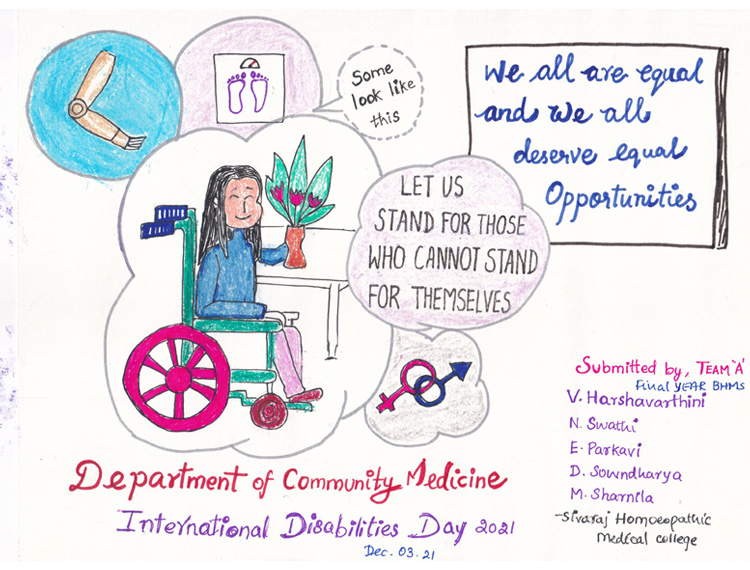 Some
look like
this
We all are equal
and we all
deserve equal
Opportunities
LET US
STAND FOR THOSE
WHO CANNOT STAND
FOR THEMSELVES
Submitted by, TEAM 'A'
Final YEAR BHMS
V. Harshavarthini
N. Swathi
E. Parkavi
D. Sowndharya
M. Sharmila
-Sivaraj Homoeopathic
Medical college
Department of Community Medicine
International Disabilities Day 2021
Dec. 03. 21